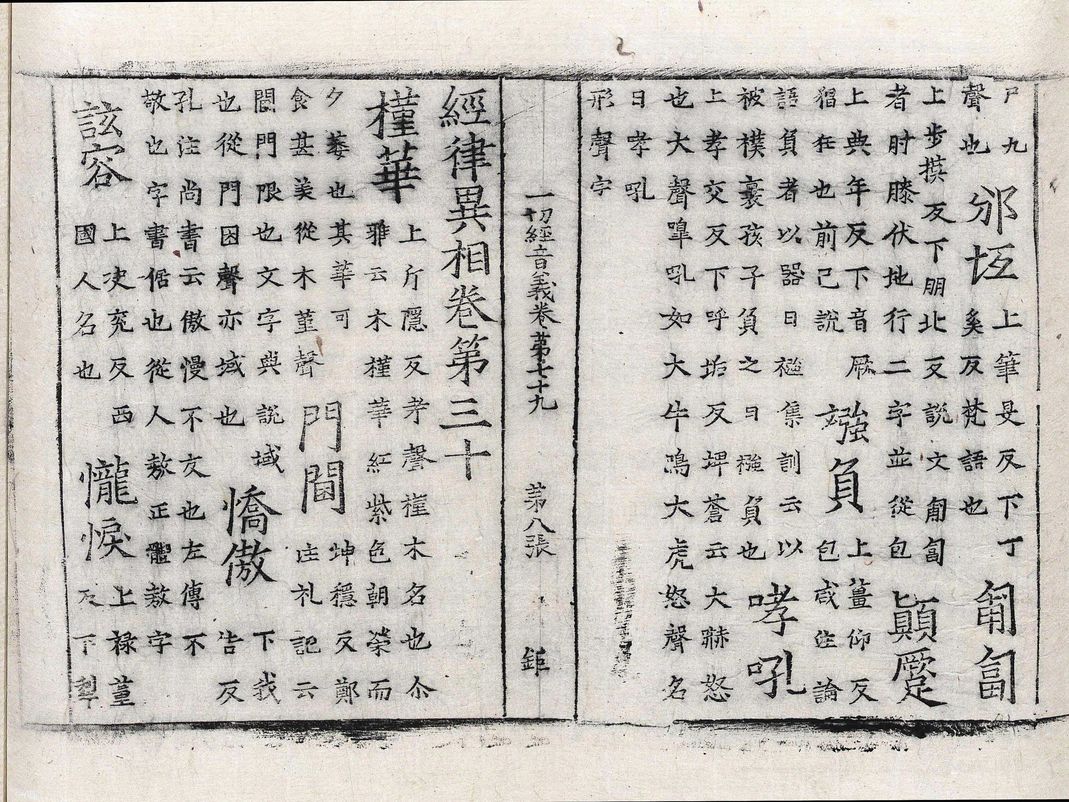 尸九
聲也
邠坻
上筆旻反下丁
奚反梵語也
匍匐
上步摸反下朋北反説文匍匐
者肘膝伏地行二字並從包
顛蹷
上典年反下音厥
猖狂也前已説
繈負
上薑仰反
包咸注論
語負者以器曰繈集訓云以
被樸褁孩子負之曰繈負也
哮吼
上孝交反下呼垢反埤蒼云大怒
也大聲嘷吼如大牛鳴大虎怒聲名
曰哮吼
形聲字
一切經音義卷第七十九 第八張 鉅
經律異相卷第三十
槿華
上斤隱反考聲槿木名也尒
雅云木槿華紅紫色朝榮而
夕萎也其華可
食甚美從木堇聲
門閫
坤穩反鄭
注礼記云
閫門限也文字典說域
也從門困聲亦域也
憍傲
下我
告反
孔注尚書云傲慢不友也左傳不
敬也字書倨也從人敖正體敖字
詃容
上决兖反西
國人名也
㦕悷
上祿董
反下犁